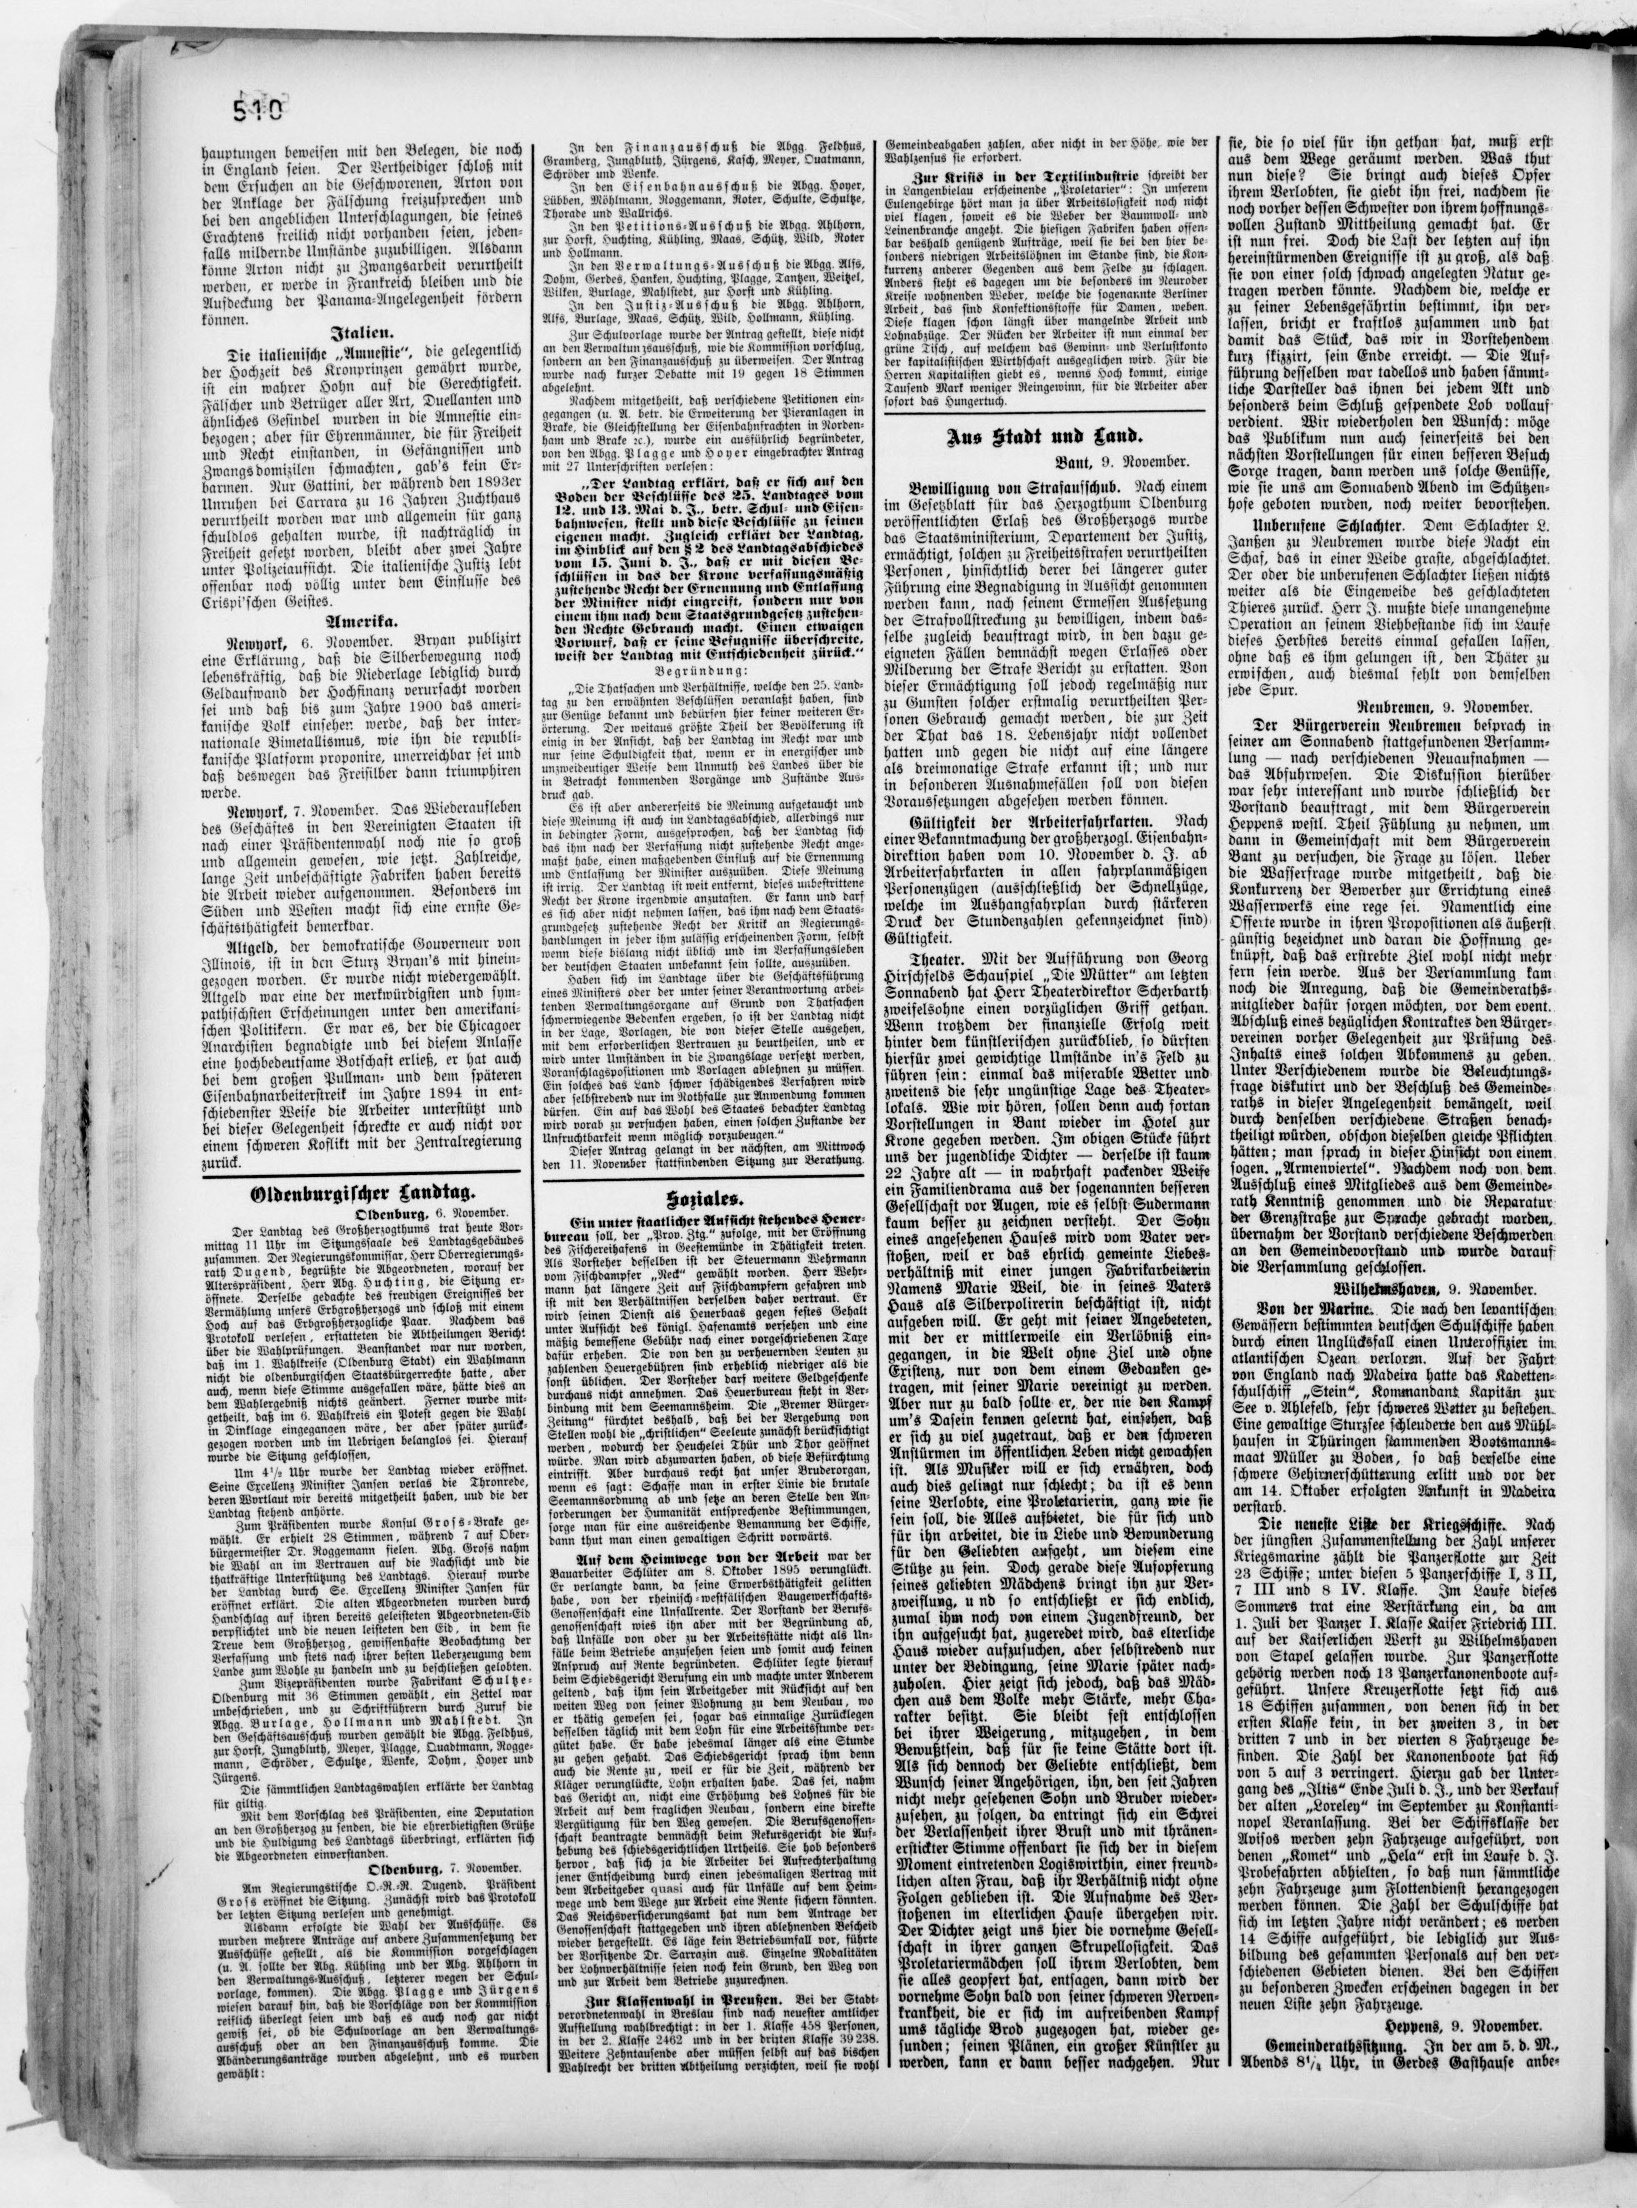 510
hauptungen beweisen mit den Belegen, die noch
in England seien. Der Vertheidiger schloß mit
dem Ersuchen an die Geschworenen, Arton von
der Anklage der Fälschung freizusprechen und
bei den angeblichen Unterschlagungen, die seines
Erachtens freilich nicht vorhanden seien, jeden-
falls mildernde Umstände zuzubilligen. Alsdann
könne Arton nicht zu Zwangsarbeit verurtheilt
werden, er werde in Frankreich bleiben und die
Aufdeckung der Panama-Angelegenheit fördern
können.
Italien.
Die italienische „Amnestie“, die gelegentlich
der Hochzeit des Kronprinzen gewährt wurde,
ist ein wahrer Hohn auf die Gerechtigkeit.
Fälscher und Betrüger aller Art, Duellanten und
ähnliches Gesindel wurden in die Amnestie ein-
bezogen; aber für Ehrenmänner, die für Freiheit
und Recht einstanden, in Gefängnissen und
Zwangsdomizilen schmachten, gab's kein Er-
barmen. Nur Gattini, der während den 1893er
Unruhen bei Carrara zu 16 Jahren Zuchthaus
verurtheilt worden war und allgemein für ganz
schuldlos gehalten wurde, ist nachträglich in
Freiheit gesetzt worden, bleibt aber zwei Jahre
unter Polizeiaufsicht. Die italienische Justiz lebt
offenbar noch völlig unter dem Einflusse des
Crispi'schen Geistes.
Amerika.
Newyork, 6. November. Bryan publizirt
eine Erklärung, daß die Silberbewegung noch
lebenskräftig, daß die Niederlage lediglich durch
Geldaufwand der Hochfinanz verursacht worden
sei und daß bis zum Jahre 1900 das ameri-
kanische Volk einsehen werde, daß der inter-
nationale Bimetallismus, wie ihn die republi-
kanische Platform proponire, unerreichbar sei und
daß deswegen das Freisilber dann triumphiren
werde.
Newyork, 7. November. Das Wiederaufleben
des Geschäftes in den Vereinigten Staaten ist
nach einer Präsidentenwahl noch nie so groß
und allgemein gewesen, wie jetzt. Zahlreiche,
lange Zeit unbeschäftigte Fabriken haben bereits
die Arbeit wieder aufgenommen. Besonders im
Süden und Westen macht sich eine ernste Ge-
schäftsthätigkeit bemerkbar.
Altgeld, der demokratische Gouverneur von
Illinois, ist in den Sturz Bryan's mit hinein-
gezogen worden. Er wurde nicht wiedergewählt.
Altgeld war eine der merkwürdigsten und sym-
pathischsten Erscheinungen unter den amerikani-
schen Politikern. Er war es, der die Chicagoer
Anarchisten begnadigte und bei diesem Anlasse
eine hochbedeutsame Botschaft erließ, er hat auch
bei dem großen Pullman- und dem späteren
Eisenbahnarbeiterstreik im Jahre 1894 in ent-
schiedenster Weise die Arbeiter unterstützt und
bei dieser Gelegenheit schreckte er auch nicht vor
einem schweren Koflikt mit der Zentralregierung
zurück.
Oldenburgischer Landtag.
Oldenburg, 6. November.
Der Landtag des Großherzogthums trat heute Vor-
mittag 11 Uhr im Sitzungssaale des Landtagsgebäudes
zusammen. Der Regierungskommissar, Herr Oberregierungs-
rath Dugend, begrüßte die Abgeordneten, worauf der
Alterspräsident, Herr Abg. Huchting, die Sitzung er-
öffnete. Derselbe gedachte des freudigen Ereignisses der
Vermählung unsers Erbgroßherzogs und schloß mit einem
Hoch auf das Erbgroßherzogliche Paar. Nachdem das
Protokoll verlesen, erstatteten die Abtheilungen Bericht
über die Wahlprüfungen. Beanstandet war nur worden,
daß im 1. Wahlkreise (Oldenburg Stadt) ein Wahlmann
nicht die oldenburgischen Staatsbürgerrechte hatte, aber
auch, wenn diese Stimme ausgefallen wäre, hätte dies an
dem Wahlergebniß nichts geändert. Ferner wurde mit-
getheilt, daß im 6. Wahlkreis ein Potest gegen die Wahl
in Dinklage eingegangen wäre, der aber später zurück-
gezogen worden und im Uebrigen belanglos sei. Hierauf
wurde die Sitzung geschlossen,
Um 4½ Uhr wurde der Landtag wieder eröffnet.
Seine Excellenz Minister Jansen verlas die Thronrede,
deren Wortlaut wir bereits mitgetheilt haben, und die der
Landtag stehend anhörte.
Zum Präsidenten wurde Konsul Gross-Brake ge-
wählt. Er erhielt 28 Stimmen, während 7 auf Ober-
bürgermeister Dr. Roggemann fielen. Abg. Gross nahm
die Wahl an im Vertrauen auf die Nachsicht und die
thatkräftige Unterstützung des Landtags. Hierauf wurde
der Landtag durch Se. Excellenz Minister Jansen für
eröffnet erklärt. Die alten Abgeordneten wurden durch
Handschlag auf ihren bereits geleisteten Abgeordneten-Eid
verpflichtet und die neuen leisteten den Eid, in dem sie
Treue dem Großherzog, gewissenhafte Beobachtung der
Verfassung und stets nach ihrer besten Ueberzeugung dem
Lande zum Wohle zu handeln und zu beschließen gelobten.
Zum Vizepräsidenten wurde Fabrikant Schultze-
Oldenburg mit 36 Stimmen gewählt, ein Zettel war
unbeschrieben, und zu Schriftführern durch Zuruf die
Abgg. Burlage, Hollmann und Mahlstedt. In
den Geschäftsausschuß wurden gewählt die Abgg. Feldhus,
zur Horst, Jungbluth, Meyer, Plagge, Quadtmann, Rogge-
mann, Schröder, Schultze, Wenke, Dohm, Hoyer und
Jürgens.
Die sämmtlichen Landtagswahlen erklärte der Landtag
für giltig.
Mit dem Vorschlag des Präsidenten, eine Deputation
an den Großherzog zu senden, die die ehrerbietigsten Grüße
und die Huldigung des Landtags überbringt, erklärten sich
die Abgeordneten einverstanden.
Oldenburg, 7. November.
Am Regierungstische O.-R.-R. Dugend. Präsident
Gross eröffnet die Sitzung. Zunächst wird das Protokoll
der letzten Sitzung verlesen und genehmigt.
Alsdann erfolgte die Wahl der Ausschüsse. Es
wurden mehrere Anträge auf andere Zusammensetzung der
Ausschüsse gestellt, als die Kommission vorgeschlagen
(u. A. sollte der Abg. Kühling und der Abg. Ahlhorn in
den Verwaltungs-Ausschuß, letzterer wegen der Schul-
vorlage, kommen). Die Abgg. Plagge und Jürgens
wiesen darauf hin, daß die Vorschläge von der Kommission
reiflich überlegt seien und daß es auch noch gar nicht
gewiß sei, ob die Schulvorlage an den Verwaltungs-
ausschuß oder an den Finanzausschuß komme. Die
Abänderungsanträge wurden abgelehnt, und es wurden
gewählt:
In den Finanzausschuß die Abgg. Feldhus,
Gramberg, Jungbluth, Jürgens, Kasch, Meyer, Quatmann,
Schröder und Wenke.
In den Eisenbahnausschuß die Abgg. Hoyer,
Lübben, Möhlmann, Roggemann, Roter, Schulte, Schultze,
Thorade und Wallrichs.
In den Petitions-Ausschuß die Abgg. Ahlhorn,
zur Horst, Huchting, Kühling, Maas, Schütz, Wild, Roter
und Hollmann.
In den Verwaltungs-Ausschuß die Abgg. Alfs,
Dohm, Gerdes, Hanken, Huchting, Plagge, Tantzen, Weitzel,
Wilken, Burlage, Mahlstedt, zur Horst und Kühling.
In den Justiz-Ausschuß die Abgg. Ahlhorn,
Alfs, Burlage, Maas, Schütz, Wild, Hollmann, Kühling.
Zur Schulvorlage wurde der Antrag gestellt, diese nicht
an den Verwaltungsausschuß, wie die Kommission vorschlug,
sondern an den Finanzausschuß zu überweisen. Der Antrag
wurde nach kurzer Debatte mit 19 gegen 18 Stimmen
abgelehnt.
Nachdem mitgetheilt, daß verschiedene Petitionen ein-
gegangen (u. A. betr. die Erweiterung der Pieranlagen in
Brake, die Gleichstellung der Eisenbahnfrachten in Norden-
ham und Brake ec.), wurde ein ausführlich begründeter,
von den Abgg. Plagge und Hoyer eingebrachter Antrag
mit 27 Unterschriften verlesen:
„Der Landtag erklärt, daß er sich auf den
Boden der Beschlüsse des 25. Landtages vom
12. und 13. Mai d. J., betr. Schul- und Eisen-
bahnwesen, stellt und diese Beschlüsse zu seinen
eigenen macht. Zugleich erklärt der Landtag,
im Hinblick auf den § 2 des Landtagsabschiedes
vom 15. Juni d. J., daß er mit diesen Be-
schlüssen in das der Krone verfassungsmäßig
zustehende Recht der Ernennung und Entlassung
der Minister nicht eingreift, sondern nur von
einem ihm nach dem Staatsgrundgesetz zustehen-
den Rechte Gebrauch macht. Einen etwaigen
Vorwurf, daß er seine Befugnisse überschreite,
weist der Landtag mit Entschiedenheit zurück.“
Begründung:
„Die Thatsachen und Verhältnisse, welche den 25. Land-
tag zu den erwähnten Beschlüssen veranlaßt haben, sind
zur Genüge bekannt und bedürfen hier keiner weiteren Er-
örterung. Der weitaus größte Theil der Bevölkerung ist
einig in der Ansicht, daß der Landtag im Recht war und
nur seine Schuldigkeit that, wenn er in energischer und
unzweideutiger Weise dem Unmuth des Landes über die
in Betracht kommenden Vorgänge und Zustände Aus-
druck gab.
Es ist aber andererseits die Meinung aufgetaucht und
diese Meinung ist auch im Landtagsabschied, allerdings nur
in bedingter Form, ausgesprochen, daß der Landtag sich
das ihm nach der Verfassung nicht zustehende Recht ange-
maßt habe, einen maßgebenden Einfluß auf die Ernennung
und Entlassung der Minister auszuüben. Diese Meinung
ist irrig. Der Landtag ist weit entfernt, dieses unbestrittene
Recht der Krone irgendwie anzutasten. Er kann und darf
es sich aber nicht nehmen lassen, das ihm nach dem Staats-
grundgesetz zustehende Recht der Kritik an Regierungs-
handlungen in jeder ihm zulässig erscheinenden Form, selbst
wenn diese bislang nicht üblich und im Verfassungsleben
der deutschen Staaten unbekannt sein sollte, auszuüben.
Haben sich im Landtage über die Geschäftsführung
eines Ministers oder der unter seiner Verantwortung arbei-
tenden Verwaltungsorgane auf Grund von Thatsachen
schwerwiegende Bedenken ergeben, so ist der Landtag nicht
in der Lage, Vorlagen, die von dieser Stelle ausgehen,
mit dem erforderlichen Vertrauen zu beurtheilen, und er
wird unter Umständen in die Zwangslage versetzt werden,
Voranschlagspositionen und Vorlagen ablehnen zu müssen.
Ein solches das Land schwer schädigendes Verfahren wird
aber selbstredend nur im Nothfalle zur Anwendung kommen
dürfen. Ein auf das Wohl des Staates bedachter Landtag
wird vorab zu versuchen haben, einen solchen Zustande der
Unfruchtbarkeit wenn möglich vorzubeugen.“
Dieser Antrag gelangt in der nächsten, am Mittwoch
den 11. November stattfindenden Sitzung zur Berathung.
Soziales.
Ein unter staatlicher Aufsicht stehendes Heuer-
bureau soll, der „Prov. Ztg.“ zufolge, mit der Eröffnung
des Fischereihafens in Geestemünde in Thätigkeit treten.
Als Vorsteher desselben ist der Steuermann Wehrmann
vom Fischdampfer „Neck“ gewählt worden. Herr Wehr-
mann hat längere Zeit auf Fischdampfern gefahren und
ist mit den Verhältnissen derselben daher vertraut. Er
wird seinen Dienst als Heuerbaas gegen festes Gehalt
unter Aufsicht des königl. Hafenamts versehen und eine
mäßig bemessene Gebühr nach einer vorgeschriebenen Taxe
dafür erheben. Die von den zu verheuernden Leuten zu
zahlenden Heuergebühren sind erheblich niedriger als die
sonst üblichen. Der Vorsteher darf weitere Geldgeschenke
durchaus nicht annehmen. Das Heuerbureau steht in Ver-
bindung mit dem Seemannsheim. Die „Bremer Bürger-
Zeitung“ fürchtet deshalb, daß bei der Vergebung von
Stellen wohl die „christlichen“ Seeleute zunächst berücksichtigt
werden, wodurch der Heuchelei Thür und Thor geöffnet
würde. Man wird abzuwarten haben, ob diese Befürchtung
eintrifft. Aber durchaus recht hat unser Bruderorgan,
wenn es sagt: Schaffe man in erster Linie die brutale
Seemannsordnung ab und setze an deren Stelle den An-
forderungen der Humanität entsprechende Bestimmungen,
sorge man für eine ausreichende Bemannung der Schiffe,
dann thut man einen gewaltigen Schritt vorwärts.
Auf dem Heimwege von der Arbeit war der
Bauarbeiter Schlüter am 8. Oktober 1895 verunglückt.
Er verlangte dann, da seine Erwerbsthätigkeit gelitten
habe, von der rheinisch-westfälischen Baugewerkschafts-
Genossenschaft eine Unfallrente. Der Vorstand der Berufs-
genossenschaft wies ihn aber mit der Begründung ab,
daß Unfälle von oder zu der Arbeitsstätte nicht als Un-
fälle beim Betriebe anzusehen seien und somit auch keinen
Anspruch auf Rente begründeten. Schlüter legte hierauf
beim Schiedsgericht Berufung ein und machte unter Anderem
geltend, daß ihm sein Arbeitgeber mit Rücksicht auf den
weiten Weg von seiner Wohnung zu dem Neubau, wo
er thätig gewesen sei, sogar das einmalige Zurücklegen
desselben täglich mit dem Lohn für eine Arbeitsstunde ver-
gütet habe. Er habe jedesmal länger als eine Stunde
zu gehen gehabt. Das Schiedsgericht sprach ihm denn
auch die Rente zu, weil er für die Zeit, während der
Kläger verunglückte, Lohn erhalten habe. Das sei, nahm
das Gericht an, nicht eine Erhöhung des Lohnes für die
Arbeit auf dem fraglichen Neubau, sondern eine direkte
Vergütigung für den Weg gewesen. Die Berufsgenossen-
schaft beantragte demnächst beim Rekursgericht die Auf-
hebung des schiedsgerichtlichen Urtheils. Sie hob besonders
hervor, daß sich ja die Arbeiter bei Aufrechterhaltung
jener Entscheidung durch einen jedesmaligen Vertrag mit
dem Arbeitgeber quasi auch für Unfälle auf dem Heim-
wege und dem Wege zur Arbeit eine Rente sichern könnten.
Das Reichsversicherungsamt hat nun dem Antrage der
Genossenschaft stattgegeben und ihren ablehnenden Bescheid
wieder hergestellt. Es läge kein Betriebsunfall vor, führte
der Vorsitzende Dr. Sarrazin aus. Einzelne Modalitäten
der Lohnverhältnisse seien noch kein Grund, den Weg von
und zur Arbeit dem Betriebe zuzurechnen.
Zur Klassenwahl in Preußen. Bei der Stadt-
verordnetenwahl in Breslau sind nach neuester amtlicher
Aufstellung wahlbrechtigt: in der 1. Klasse 458 Personen,
in der 2. Klasse 2462 und in der dritten Klasse 39 238.
Weitere Zehntausende aber müssen selbst auf das bischen
Wahlrecht der dritten Abtheilung verzichten, weil sie wohl
Gemeindeabgaben zahlen, aber nicht in der Höhe, wie der
Wahlzensus sie erfordert.
Zur Krisis in der Textilindustrie schreibt der
in Langenbielau erscheinende „Proletarier“: In unserem
Eulengebirge hört man ja über Arbeitslosigkeit noch nicht
viel klagen, soweit es die Weber der Baumwoll- und
Leinenbranche angeht. Die hiesigen Fabriken haben offen-
bar deshalb genügend Aufträge, weil sie bei den hier be-
sonders niedrigen Arbeitslöhnen im Stande sind, die Kon-
kurrenz anderer Gegenden aus dem Felde zu schlagen.
Anders steht es dagegen um die besonders im Neuroder
Kreise wohnenden Weber, welche die sogenannte Berliner
Arbeit, das sind Konfektionsstoffe für Damen, weben.
Diese klagen schon längst über mangelnde Arbeit und
Lohnabzüge. Der Rücken der Arbeiter ist nun einmal der
grüne Tisch, auf welchem das Gewinn- und Verlustkonto
der kapitalistischen Wirthschaft ausgeglichen wird. Für die
Herren Kapitalisten giebt es, wenns Hoch kommt, einige
Tausend Mark weniger Reingewinn, für die Arbeiter aber
sofort das Hungertuch.
Aus Stadt und Land.
Bant, 9. November.
Bewilligung von Strafaufschub. Nach einem
im Gesetzblatt für das Herzogthum Oldenburg
veröffentlichten Erlaß des Großherzogs wurde
das Staatsministerium, Departement der Justiz,
ermächtigt, solchen zu Freiheitsstrafen verurtheilten
Personen, hinsichtlich derer bei längerer guter
Führung eine Begnadigung in Aussicht genommen
werden kann, nach seinem Ermessen Aussetzung
der Strafvollstreckung zu bewilligen, indem das-
selbe zugleich beauftragt wird, in den dazu ge-
eigneten Fällen demnächst wegen Erlasses oder
Milderung der Strafe Bericht zu erstatten. Von
dieser Ermächtigung soll jedoch regelmäßig nur
zu Gunsten solcher erstmalig verurtheilten Per-
sonen Gebrauch gemacht werden, die zur Zeit
der That das 18. Lebensjahr nicht vollendet
hatten und gegen die nicht auf eine längere
als dreimonatige Strafe erkannt ist; und nur
in besonderen Ausnahmefällen soll von diesen
Voraussetzungen abgesehen werden können.
Gültigkeit der Arbeiterfahrkarten. Nach
einer Bekanntmachung der großherzogl. Eisenbahn-
direktion haben vom 10. November d. J. ab
Arbeiterfahrkarten in allen fahrplanmäßigen
Personenzügen (ausschließlich der Schnellzüge,
welche im Aushangfahrplan durch stärkeren
Druck der Stundenzahlen gekennzeichnet sind)
Gültigkeit.
Theater. Mit der Aufführung von Georg
Hirschfelds Schauspiel „Die Mütter“ am letzten
Sonnabend hat Herr Theaterdirektor Scherbarth
zweifelsohne einen vorzüglichen Griff gethan.
Wenn trotzdem der finanzielle Erfolg weit
hinter dem künstlerischen zurückblieb, so dürften
hierfür zwei gewichtige Umstände in's Feld zu
führen sein: einmal das miserable Wetter und
zweitens die sehr ungünstige Lage des Theater-
lokals. Wie wir hören, sollen denn auch fortan
Vorstellungen in Bant wieder im Hotel zur
Krone gegeben werden. Im obigen Stücke führt
uns der jugendliche Dichter — derselbe ist kaum
22 Jahre alt — in wahrhaft packender Weise
ein Familiendrama aus der sogenannten besseren
Gesellschaft vor Augen, wie es selbst Sudermann
kaum besser zu zeichnen versteht. Der Sohn
eines angesehenen Hauses wird vom Vater ver-
stoßen, weil er das ehrlich gemeinte Liebes-
verhältniß mit einer jungen Fabrikarbeiterin
Namens Marie Weil, die in seines Vaters
Haus als Silberpolirerin beschäftigt ist, nicht
aufgeben will. Er geht mit seiner Angebeteten,
mit der er mittlerweile ein Verlöbniß ein-
gegangen, in die Welt ohne Ziel und ohne
Existenz, nur von dem einem Gedanken ge-
tragen, mit seiner Marie vereinigt zu werden.
Aber nur zu bald sollte er, der nie den Kampf
um's Dasein kennen gelernt hat, einsehen, daß
er sich zu viel zugetraut, daß er den schweren
Anstürmen im öffentlichen Leben nicht gewachsen
ist. Als Musiker will er sich ernähren, doch
auch dies gelingt nur schlecht; da ist es denn
seine Verlobte, eine Proletarierin, ganz wie sie
sein soll, die Alles aufbietet, die für sich und
für ihn arbeitet, die in Liebe und Bewunderung
für den Geliebten aufgeht, um diesem eine
Stütze zu sein. Doch gerade diese Aufopferung
seines geliebten Mädchens bringt ihn zur Ver-
zweiflung, und so entschließt er sich endlich,
zumal ihm noch von einem Jugendfreund, der
ihn aufgesucht hat, zugeredet wird, das elterliche
Haus wieder aufzusuchen, aber selbstredend nur
unter der Bedingung, seine Marie später nach-
zuholen. Hier zeigt sich jedoch, daß das Mäd-
chen aus dem Volke mehr Stärke, mehr Cha-
rakter besitzt. Sie bleibt fest entschlossen
bei ihrer Weigerung, mitzugehen, in dem
Bewußtsein, daß für sie keine Stätte dort ist.
Als sich dennoch der Geliebte entschließt, dem
Wunsch seiner Angehörigen, ihn, den seit Jahren
nicht mehr gesehenen Sohn und Bruder wieder-
zusehen, zu folgen, da entringt sich ein Schrei
der Verlassenheit ihrer Brust und mit thränen-
erstickter Stimme offenbart sie sich der in diesem
Moment eintretenden Logiswirthin, einer freund-
lichen alten Frau, daß ihr Verhältniß nicht ohne
Folgen geblieben ist. Die Aufnahme des Ver-
stoßenen im elterlichen Hause übergehen wir.
Der Dichter zeigt uns hier die vornehme Gesell-
schaft in ihrer ganzen Skrupellosigkeit. Das
Proletariermädchen soll ihrem Verlobten, dem
sie alles geopfert hat, entsagen, dann wird der
vornehme Sohn bald von seiner schweren Nerven-
krankheit, die er sich im aufreibenden Kampf
ums tägliche Brod zugezogen hat, wieder ge-
sunden; seinen Plänen, ein großer Künstler zu
werden, kann er dann besser nachgehen. Nur
sie, die so viel für ihn gethan hat, muß erst
aus dem Wege geräumt werden. Was thut
nun diese? Sie bringt auch dieses Opfer
ihrem Verlobten, sie giebt ihn frei, nachdem sie
noch vorher dessen Schwester von ihrem hoffnungs-
vollen Zustand Mittheilung gemacht hat. Er
ist nun frei. Doch die Last der letzten auf ihn
hereinstürmenden Ereignisse ist zu groß, als daß
sie von einer solch schwach angelegten Natur ge-
tragen werden könnte. Nachdem die, welche er
zu seiner Lebensgefährtin bestimmt, ihn ver-
lassen, bricht er kraftlos zusammen und hat
damit das Stück, das wir in Vorstehendem
kurz skizzirt, sein Ende erreicht. — Die Auf-
führung desselben war tadellos und haben sämmt-
liche Darsteller das ihnen bei jedem Akt und
besonders beim Schluß gespendete Lob vollauf
verdient. Wir wiederholen den Wunsch: möge
das Publikum nun auch seinerseits bei den
nächsten Vorstellungen für einen besseren Besuch
Sorge tragen, dann werden uns solche Genüsse,
wie sie uns am Sonnabend Abend im Schützen-
hofe geboten wurden, noch weiter bevorstehen.
Unberufene Schlachter. Dem Schlachter L.
Janßen zu Neubremen wurde diese Nacht ein
Schaf, das in einer Weide graste, abgeschlachtet.
Der oder die unberufenen Schlachter ließen nichts
weiter als die Eingeweide des geschlachteten
Thieres zurück. Herr J. mußte diese unangenehme
Operation an seinem Viehbestande sich im Laufe
dieses Herbstes bereits einmal gefallen lassen,
ohne daß es ihm gelungen ist, den Thäter zu
erwischen, auch diesmal fehlt von demselben
jede Spur.
Neubremen, 9. November.
Der Bürgerverein Neubremen besprach in
seiner am Sonnabend stattgefundenen Versamm-
lung — nach verschiedenen Neuaufnahmen —
das Abfuhrwesen. Die Diskussion hierüber
war sehr interessant und wurde schließlich der
Vorstand beauftragt, mit dem Bürgerverein
Heppens westl. Theil Fühlung zu nehmen, um
dann in Gemeinschaft mit dem Bürgerverein
Bant zu versuchen, die Frage zu lösen. Ueber
die Wasserfrage wurde mitgetheilt, daß die
Konkurrenz der Bewerber zur Errichtung eines
Wasserwerks eine rege sei. Namentlich eine
Offerte wurde in ihren Propositionen als äußerst
günstig bezeichnet und daran die Hoffnung ge-
knüpft, daß das erstrebte Ziel wohl nicht mehr
fern sein werde. Aus der Versammlung kam
noch die Anregung, daß die Gemeinderaths-
mitglieder dafür sorgen möchten, vor dem event.
Abschluß eines bezüglichen Kontraktes den Bürger-
vereinen vorher Gelegenheit zur Prüfung des
Inhalts eines solchen Abkommens zu geben.
Unter Verschiedenem wurde die Beleuchtungs-
frage diskutirt und der Beschluß des Gemeinde-
raths in dieser Angelegenheit bemängelt, weil
durch denselben verschiedene Straßen benach-
theiligt würden, obschon dieselben gleiche Pflichten
hätten; man sprach in dieser Hinsicht von einem
sogen. „Armenviertel“. Nachdem noch von dem
Ausschluß eines Mitgliedes aus dem Gemeinde-
rath Kenntniß genommen und die Reparatur
der Grenzstraße zur Sprache gebracht worden,
übernahm der Vorstand verschiedene Beschwerden
an den Gemeindevorstand und wurde darauf
die Versammlung geschlossen.
Wilhelmshaven, 9. November.
Von der Marine. Die nach den levantischen
Gewässern bestimmten deutschen Schulschiffe haben
durch einen Unglücksfall einen Unteroffizier im
atlantischen Ozean verloren. Auf der Fahrt
von England nach Madeira hatte das Kadetten-
schulschiff „Stein“, Kommandant Kapitän zur
See v. Ahlefeld, sehr schweres Wetter zu bestehen.
Eine gewaltige Sturzsee schleuderte den aus Mühl-
hausen in Thüringen stammenden Bootsmanns-
maat Müller zu Boden, so daß derselbe eine
schwere Gehirnerschütterung erlitt und vor der
am 14. Oktober erfolgten Ankunft in Madeira
verstarb.
Die neueste Liste der Kriegsschiffe. Nach
der jüngsten Zusammenstellung der Zahl unserer
Kriegsmarine zählt die Panzerflotte zur Zeit
23 Schiffe; unter diesen 5 Panzerschiffe I, 3 II,
7 III und 8 IV. Klasse. Im Laufe dieses
Sommers trat eine Verstärkung ein, da am
1. Juli der Panzer I. Klasse Kaiser Friedrich III.
auf der Kaiserlichen Werft zu Wilhelmshaven
von Stapel gelassen wurde. Zur Panzerflotte
gehörig werden noch 13 Panzerkanonenboote auf-
geführt. Unsere Kreuzerflotte setzt sich aus
18 Schiffen zusammen, von denen sich in der
ersten Klasse kein, in der zweiten 3, in der
dritten 7 und in der vierten 8 Fahrzeuge be-
finden. Die Zahl der Kanonenboote hat sich
von 5 auf 3 verringert. Hierzu gab der Unter-
gang des „Iltis“ Ende Juli d. J., und der Verkauf
der alten „Loreley“ im September zu Konstanti-
nopel Veranlassung. Bei der Schiffsklasse der
Avisos werden zehn Fahrzeuge aufgeführt, von
denen „Komet“ und „Hela“ erst im Laufe d. J.
Probefahrten abhielten, so daß nun sämmtliche
zehn Fahrzeuge zum Flottendienst herangezogen
werden können. Die Zahl der Schulschiffe hat
sich im letzten Jahre nicht verändert; es werden
14 Schiffe aufgeführt, die lediglich zur Aus-
bildung des gesammten Personals auf den ver-
schiedenen Gebieten dienen. Bei den Schiffen
zu besonderen Zwecken erscheinen dagegen in der
neuen Liste zehn Fahrzeuge.
Heppens, 9. November.
Gemeinderathssitzung. In der am 5. d. M.,
Abends 8½ Uhr, in Gerdes Gasthause anbe-